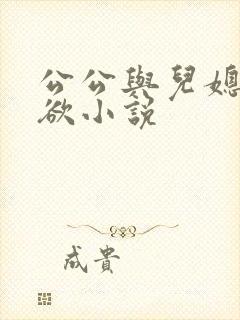 公公與兒媳
欲小說
成貴